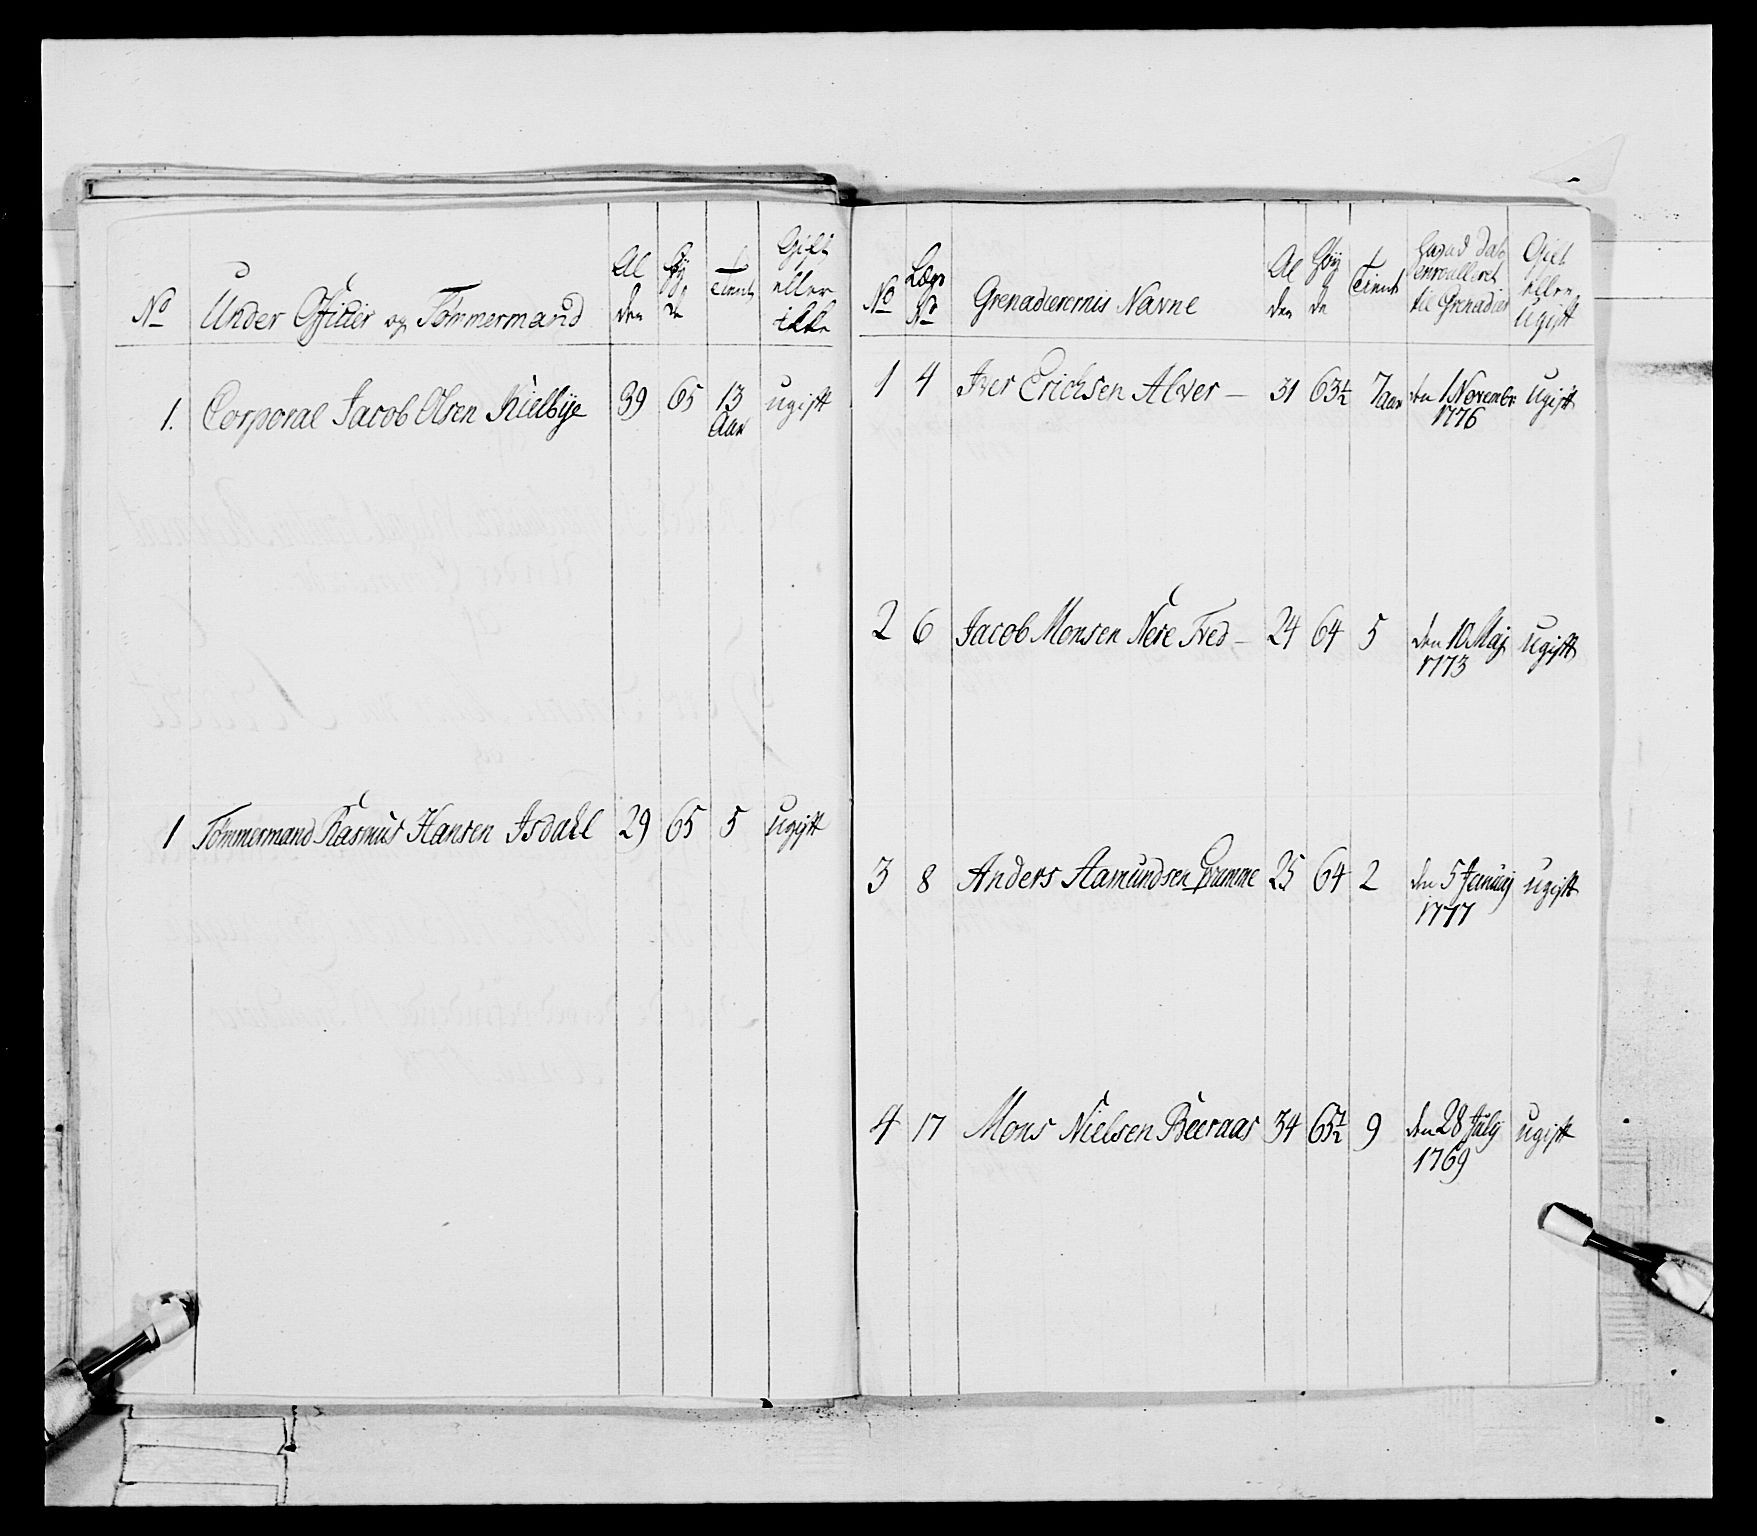 No Under Officier og Tømmermand Al den Høy de Tient Gift eller ikke
1. Corporal Jacob Olsen Kielbye 39 65 13 Aar ugift
1 Tømmermand Rasmus Hansen Isdahl 29 65 5 ugift
No Lægs No Grenaderernis Navne Al den Høy de Tient hvad Dato enroulleret til Grenadier Gift eller ugift
1 4 Iver Erichsen Alver — 31 63½ 7 aar den 1 Novembr ugift
1776
2 6 Jacob Monsen Nere Tved — 24 64 5 den 10 Maj ugift
1773
3 8 Anders Aamundsen Qvamme 25 64 2 den 5 Januarj ugift
1777
4 17 Mons Nielsen Beeraas 34 65½ 9 den 28 July ugift
1769